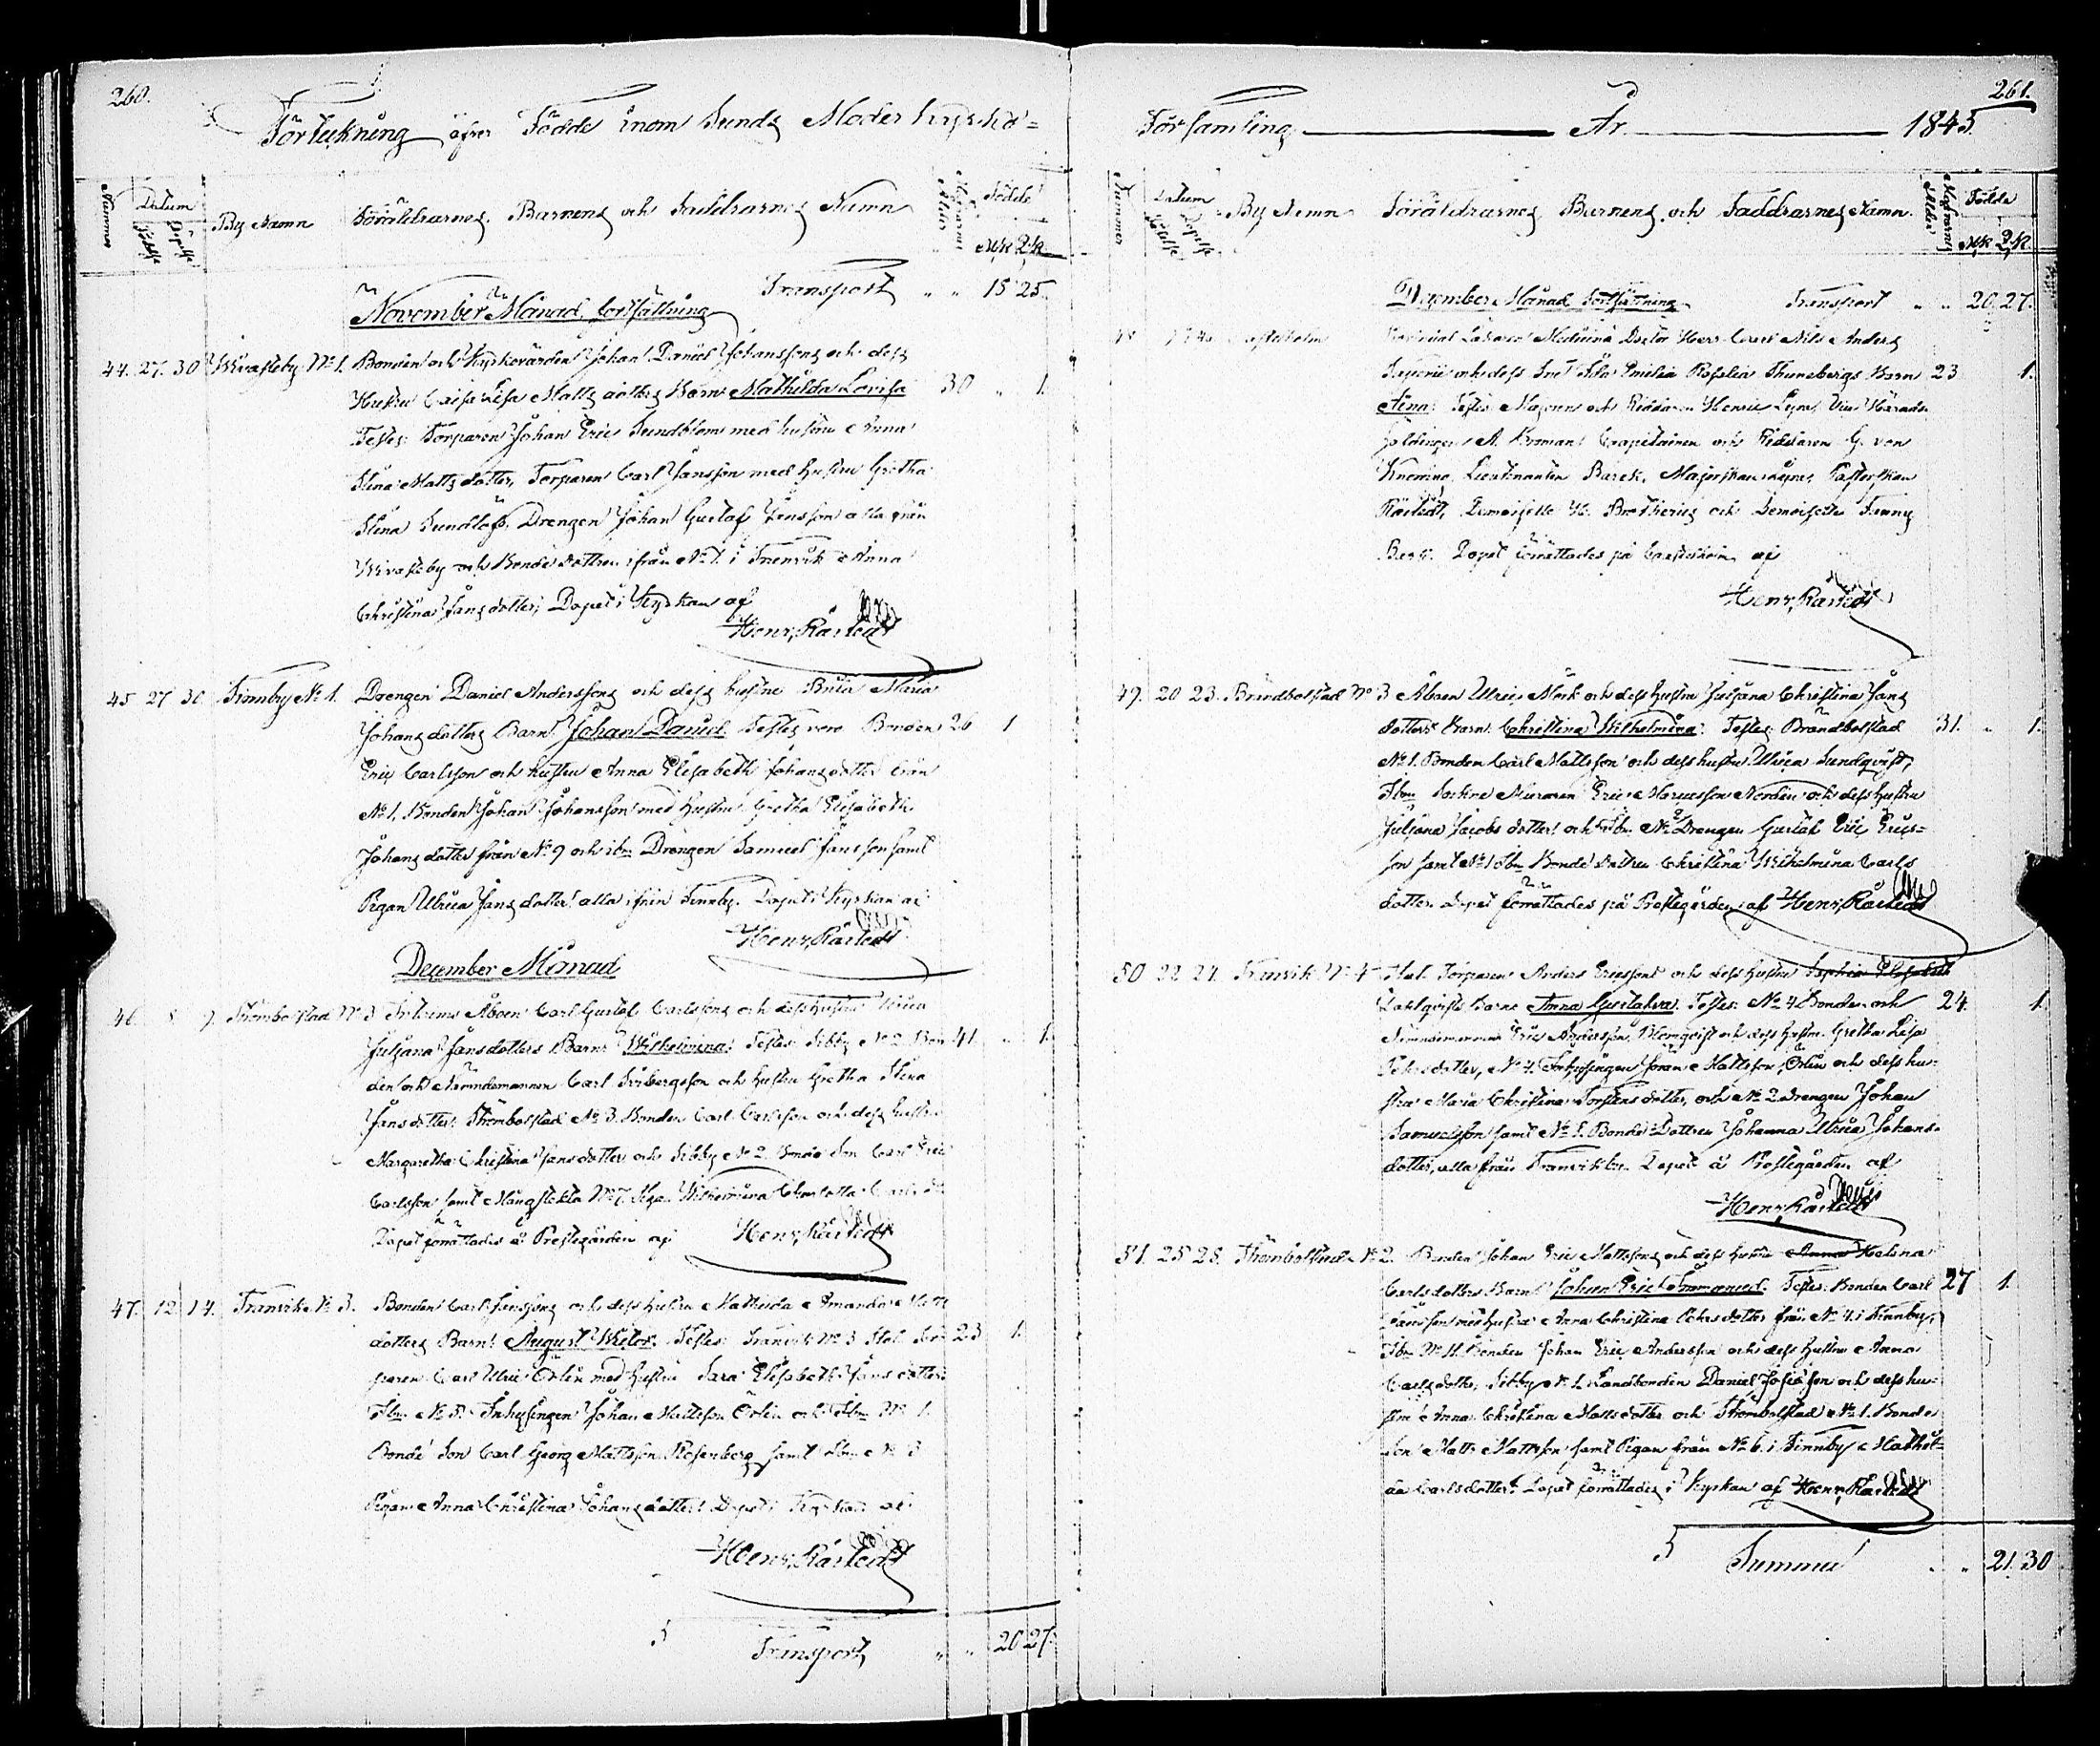 260.
Förtekning öfver Födde inom Sunds Moderkyrko=
Nummer
Datum
Födelse
Döpelse
By Namn
Föräldrarnes, Barnens och Faddrarnes Namn
Mödrarnes Ålder
Födde
M.K. Q.K.
November Månad fortsättning Transport " " 15 25.
44. 27. 30 Wivasteby No 1. Bonden och Kyrkovärden Johan Daniel Johanssons och dess
Hustru Caisa Lisa Matts dotters Barn Mathilda Lovisa 30 " 1.
Testes: Torparen Johan Eric Sundblom med hustru Anna
Stina Matts dotter, Torparen Carl Jansson med hustru Gretha
Stina Sundlöf, Drengen Johan Gustaf Jansson alla från
Wivasteby och Bonde dottren från No 1. i Tranvik Anna
Christina Jans dotter; Döpt i Kyrkan af
Henr. Råstedt
45 27 30 Finnby No 1. Drengen Daniel Anderssons och dess hustru Brita Maria
Johans dotters Barn Johan Daniel Testes voro Bonden 26 1
Eric Carlsson och hustru Anna Elisabeth Johans dotter från
No 1, Bonden Johan Johansson med Hustru Gretha Elisabeth
Johans dotter från No 9 och ibm Drengen Samuel Jansson samt
Pigan Ulrica Jans dotter alla ifrån Finnby. Döpt i Kyrkan af
Henr. Råstedt
December Månad
46. 8 9. Strömbolstad No 3 Åboen Carl Gustaf Carlssons och dess hustru Ulrica
Juljana Jansdotters Barn Wilhelmina. Testes: Sibby No 2 Bon 41. " 1.
den och Nämndemannen Carl Fribergsson och hustru Gretha Stina
Jansdotter; Strömbolstad No 3 Bonden Carl Carlsson och dess hustru
Margaretha Christina Jansdotter och Sibby No 2 Bonde Son Carl Eric
Carlsson samt Mångstekta No 7 Pigan Wilhelmina Charlotta Carlsd
Döpet förrättades å Prestegården af Henr. Råstedt
47. 12 14. Tranvik No 3. Bonden Carl Janssons och dess hustru Mathilda Amanda Matts
dotters Barn August Wictor. Testes: Tranvik No 3 Stat. Tor 23 1.
paren Carl Ulric Örlin med hustru Sara Elisabeth Jansdotter
Ibm No 5. Inhysingen Johan Mattsson Örlin och Ibm No 1.
Bonde Son Carl Georg Mattsson Rosenberg samt Ibm No 3
Pigan Anna Christina Johans dotter. Döpt i Kyrkan af
Henr. Råstedt
Transport " " 20 27.
261.
Församling År 1845.
Nummer
Datum
Födelse
Döpelse
By Namn
Föräldrarnes, Barnens och Faddrarnes Namn.
Mödrarnes Ålder
Födde
M.K. Q.K.
December Månad fortsättning Transport " " 20. 27.
48 Castelholm Provincial Läkaren Medicinae Doctor Herr Carl Nils Anders
och dess Fru Ida Emilia Rosalia Thunebergs Barn 23 1.
Aina: Testes: Majoren och Riddaren Henric Vice Härads
höfdingen A. Capitainen och Riddaren G. von
Lieutenanten Majorskan Pastorskan
Råstedt, Demoiselle H. och Demoiselle Fanny
Berg. Döpet förrättades på Castelholm af
Henr. Råstedt
49. 20 23. Brändbolstad No 3 Åboen Ulric Mörk och dess hustru Juljana Christina Jans
dotters Barn: Christina Wilhelmina. Testes: Brändbolstad 31. " 1.
No 1. Bonden Carl Mattsson och dess hustru Ulrica Sundqvist,
Ibm Sockne Muraren Eric Norden och dess hustru
Juljana Jacobs dotter och Ibm No 2 Drengen Gustaf Eric Erics=
son samt No 1 Ibm Bonde dottren Christina Wilhelmina Carls
dotter. Döpet förrättades på Prestegården af Henr. Råstedt
50 22 24. Tranvik No 4 Stat. Torparen Anders Ericssons och dess hustru Sophia Elisabeth
Dahlqvists Barn Anna Gustahva. Testes: No 4 Bonden och 24. 1.
Nämndemannen Eric Andersson Blomqvist och dess hustru Gretha Lisa
dotter, No 4. Inhysingen Jöran Mattsson Örlin och dess hu=
stru Maria Christina Torstens dotter, och No 2 Drengen Johan
Samuelsson samt No 5. Bonde Dottren Johanna Ulrica Johans=
dotter, alla från Tranvik by. Döpet å Prestegården af
Henr. Råstedt
51. 25 28. Strömbolstad No 2. Bonden Johan Eric Mattssons och dess hustru Anna Helena
Carlsdotters Barn Johan Eric Immanuel. Testes: Bonden Carl 27 1.
Jansson med hustru Anna Christina dotter från No 4. i Finnby,
Ibm No 11. Bonden Johan Eric Andersson och dess hustru Anna
Carlsdotter, Sibby No 1. Landbonden Daniel Josefsson och dess hu=
stru Anna Christina Mattsdotter och Strömbolstad No 1. Bonde
Son Matts Mattsson samt Pigan från No 6. i Finnby Mathil=
da Carlsdotter. Döpet förrättades i Kyrkan af Henr. Råstedt
Summa " " 21. 30